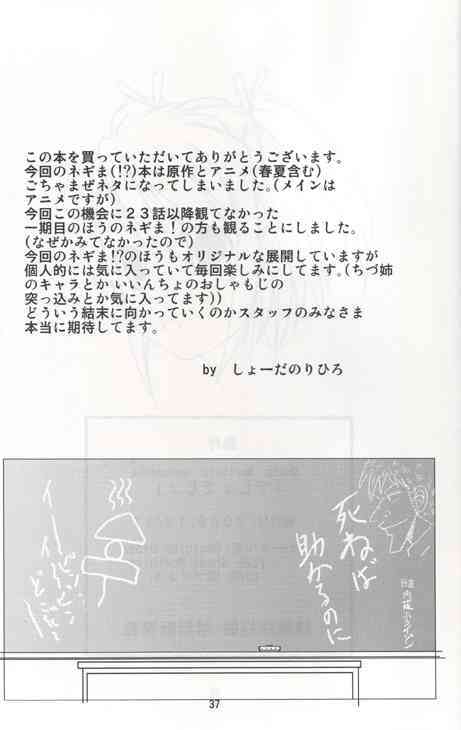 この本を買っていただいてありがとうございます。
今回のネギま(!?)本は原作とアニメ(春夏含む)
ごちゃまぜネタになってしまいました。(メインは
アニメですが)
今回この機会に２３話以降観てなかった
一期目のほうのネギま！の方も観ることにしました。
(なぜかみてなかったので)
今回のネギま!?のほうもオリジナルな展開していますが
個人的には気に入っていて毎回楽しみにしてます。(ちづ姉
のキャラとか いいんちょのおしゃもじの
突っ込みとか気に入ってます))
どういう結末に向かっていくのかスタッフのみなさま
本当に期待してます。
by しょーだのりひろ
死ねば
助かるのに
37